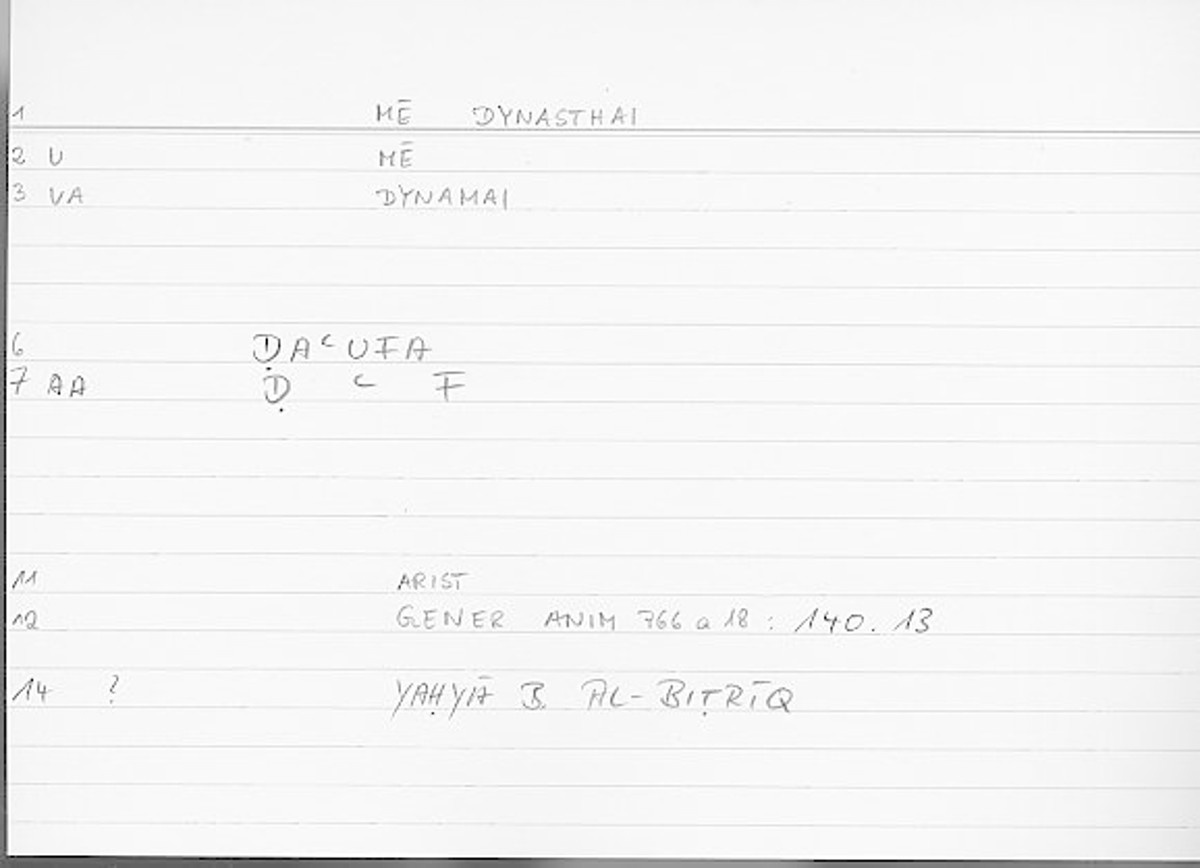 1 MĒ DYNASTHAI
2 U MĒ
3 VA DYNAMAI
6 ḌAʿUFA
7 AA Ḍ ʿ F
11 ARIST
12 GENER ANIM 766 a 18 : 140. 13
14 ? YAḤYĀ B. AL-BIṬRĪQ